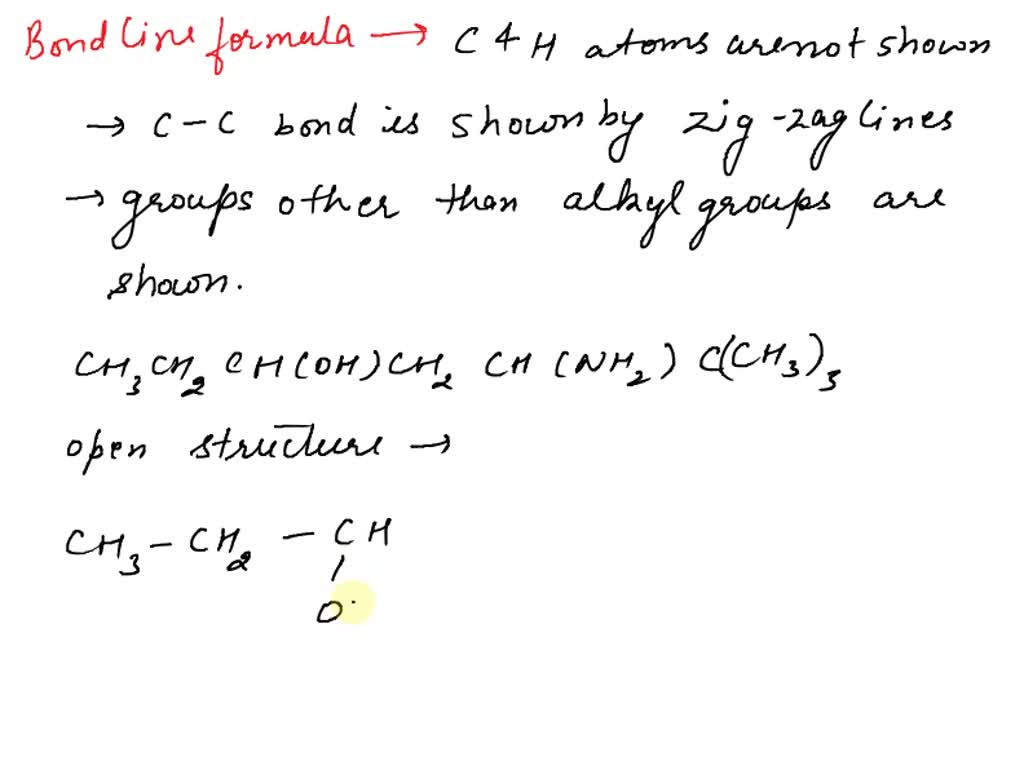 Bond line formula → C & H atoms are not shown
→ C-C bond is shown by zig-zag lines
→ groups other than alkyl groups are
shown.
CH₃CH₂CH(OH)CH₂CH(NH₂)C(CH₃)₃
open structure →
CH₃-CH₂-CH
O